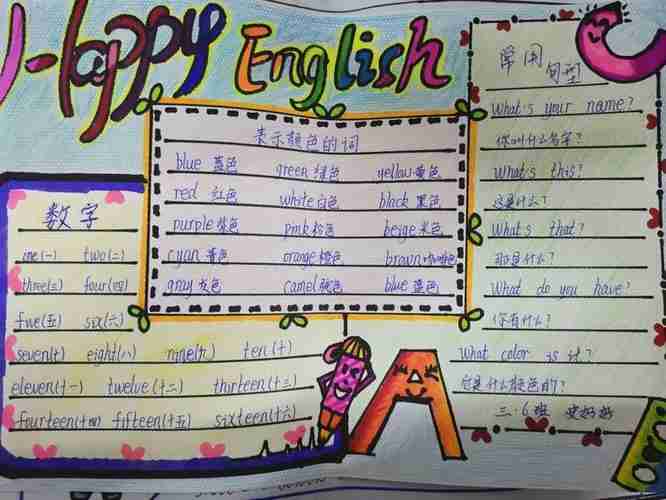 Happy English
表示颜色的词
blue 蓝色 green 绿色 yellow 黄色
red 红色 white 白色 black 黑色
purple 紫色 pink 粉色 beige 米色
cyan 青色 orange 橙色 brown 咖啡色
gray 灰色 camel 驼色 blue 蓝色
数字
one(一) two(二)
three(三) four(四)
five(五) six(六)
seven(七) eight(八) nine(九) ten(十)
eleven(十一) twelve(十二) thirteen(十三)
fourteen(十四) fifteen(十五) sixteen(十六)
常用
句型
What's your name?
你叫什么名字?
What's this?
这是什么?
What's that?
那是什么?
What do you have?
你有什么?
What color is it?
它是什么颜色的?
三·6班